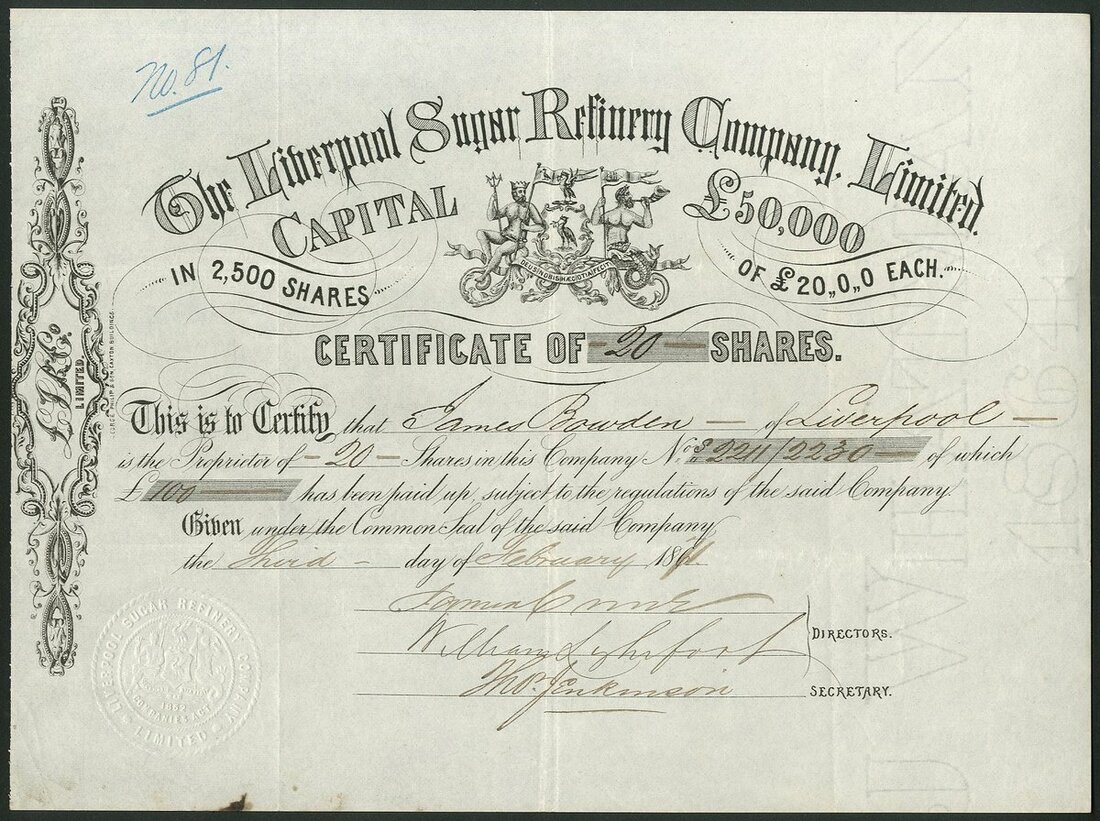 No. 81.
The Liverpool Sugar Refinery Company, Limited.
CAPITAL £50,000
IN 2,500 SHARES OF £20,,0,,0 EACH.
CERTIFICATE OF 20 SHARES.
This is to Certify that James Bowden of Liverpool
is the Proprietor of 20 Shares in this Company Nos. 2211/2230 of which
£100 has been paid up, subject to the regulations of the said Company.
Given under the Common Seal of the said Company,
the Third day of February 186
William Lightfoot
DIRECTORS.
Thos. Jenkinson
SECRETARY.
LIMITED.
LIVERPOOL SUGAR REFINERY COMPANY
LIMITED
COMPANIES ACT